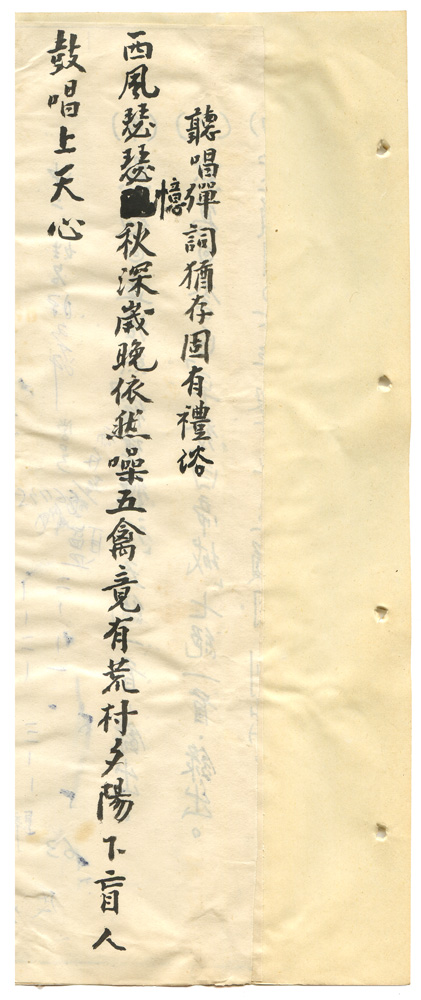 聽唱彈詞猶存固有禮俗
西風瑟瑟憶秋深歲晚依然噪五禽竟有荒村夕陽下盲人
鼓唱上天心